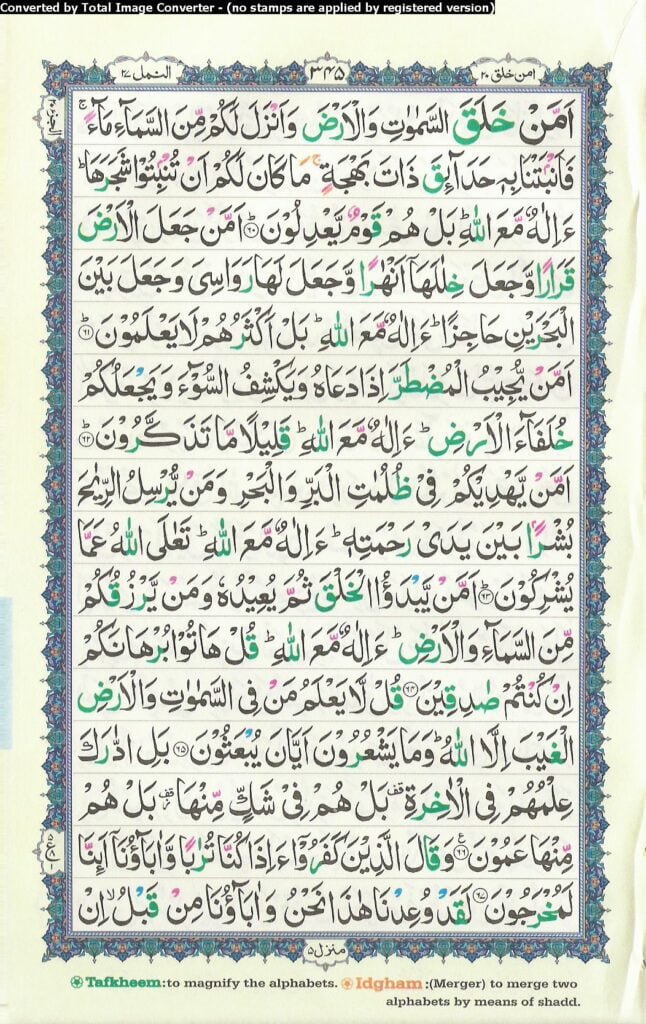 Converted by Total Image Converter - (no stamps are applied by registered version)
امن خلق ٢٠
٣٤٥
النمل ٢٧
اَمَّنْ خَلَقَ السَّمٰوٰتِ وَالْاَرْضَ وَاَنْزَلَ لَكُمْ مِّنَ السَّمَآءِ مَآءً ۚ
فَاَنْۢبَتْنَا بِهٖ حَدَآئِقَ ذَاتَ بَهْجَةٍ ۚ مَا كَانَ لَكُمْ اَنْ تُنْۢبِتُوْا شَجَرَهَا ؕ
ءَاِلٰهٌ مَّعَ اللّٰهِ ؕ بَلْ هُمْ قَوْمٌ يَّعْدِلُوْنَ ؕ﴿۶۰﴾ اَمَّنْ جَعَلَ الْاَرْضَ
قَرَارًا وَّجَعَلَ خِلٰلَهَاۤ اَنْهٰرًا وَّجَعَلَ لَهَا رَوَاسِیَ وَجَعَلَ بَيْنَ
الْبَحْرَيْنِ حَاجِزًا ؕ ءَاِلٰهٌ مَّعَ اللّٰهِ ؕ بَلْ اَكْثَرُهُمْ لَا يَعْلَمُوْنَ ؕ﴿۶۱﴾
اَمَّنْ يُّجِيْبُ الْمُضْطَرَّ اِذَا دَعَاهُ وَيَكْشِفُ السُّوْٓءَ وَيَجْعَلُكُمْ
خُلَفَآءَ الْاَرْضِ ؕ ءَاِلٰهٌ مَّعَ اللّٰهِ ؕ قَلِيْلًا مَّا تَذَكَّرُوْنَ ؕ﴿۶۲﴾
اَمَّنْ يَّهْدِيْكُمْ فِیْ ظُلُمٰتِ الْبَرِّ وَالْبَحْرِ وَمَنْ يُّرْسِلُ الرِّيٰحَ
بُشْرًۢا بَيْنَ يَدَیْ رَحْمَتِهٖ ؕ ءَاِلٰهٌ مَّعَ اللّٰهِ ؕ تَعٰلَی اللّٰهُ عَمَّا
يُشْرِكُوْنَ ؕ﴿۶۳﴾ اَمَّنْ يَّبْدَؤُا الْخَلْقَ ثُمَّ يُعِيْدُهٗ وَمَنْ يَّرْزُقُكُمْ
مِّنَ السَّمَآءِ وَالْاَرْضِ ؕ ءَاِلٰهٌ مَّعَ اللّٰهِ ؕ قُلْ هَاتُوْا بُرْهَانَكُمْ
اِنْ كُنْتُمْ صٰدِقِيْنَ ﴿۶۴﴾ قُلْ لَّا يَعْلَمُ مَنْ فِی السَّمٰوٰتِ وَالْاَرْضِ
الْغَيْبَ اِلَّا اللّٰهُ ؕ وَمَا يَشْعُرُوْنَ اَيَّانَ يُبْعَثُوْنَ ﴿۶۵﴾ بَلِ ادّٰرَكَ
عِلْمُهُمْ فِی الْاٰخِرَةِ قف بَلْ هُمْ فِیْ شَكٍّ مِّنْهَا قف بَلْ هُمْ
مِّنْهَا عَمُوْنَ ﴿۶۶﴾ع وَقَالَ الَّذِيْنَ كَفَرُوْۤا ءَاِذَا كُنَّا تُرٰبًا وَّاٰبَآؤُنَاۤ اَئِنَّا
لَمُخْرَجُوْنَ ﴿۶۷﴾ لَقَدْ وُعِدْنَا هٰذَا نَحْنُ وَاٰبَآؤُنَا مِنْ قَبْلُ ۙ اِنْ
منزل ٥
Tafkheem:to magnify the alphabets. Idgham:(Merger) to merge two
alphabets by means of shadd.